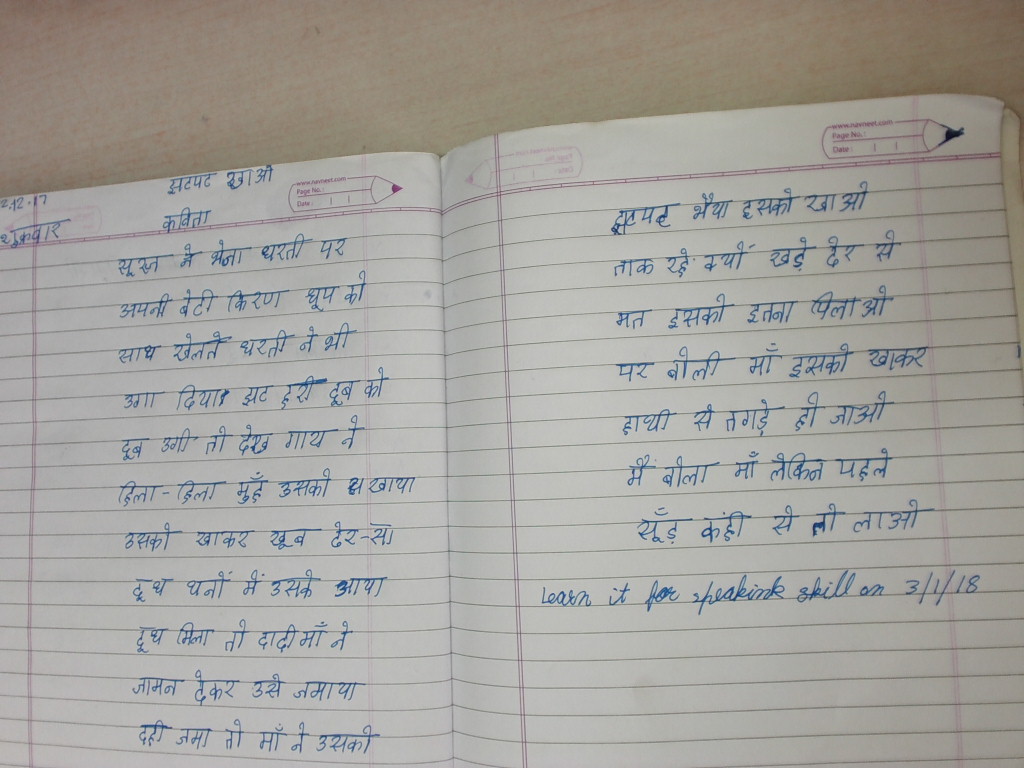 झटपट खाओ
2.12.17
शुक्रवार
कविता
www.navneet.com
Page No.:
Date:
सूरज ने भेजा धरती पर
अपनी बेटी किरण धूप को
साथ खेलते धरती ने भी
उगा दिया झट हरी दूब को
दूब उगी तो देख गाय ने
हिला-हिला मुहँ उसको खाया
उसको खाकर खूब ढेर-सा
दूध थनों में उसके आया
दूध मिला तो दादीमाँ ने
जामन देकर उसे जमाया
दही जमा तो माँ ने उसको
www.navneet.com
Page No.:
Date:
झटपट भैया इसको खाओ
ताक रहे क्यों खड़े देर से
मत इसको इतना पिलाओ
पर बोली माँ इसको खाकर
हाथी से तगड़े हो जाओ
मैं बोला माँ लेकिन पहले
सूँड़ कंही से तो लाओ
Learn it for speakink skill on 3/1/18